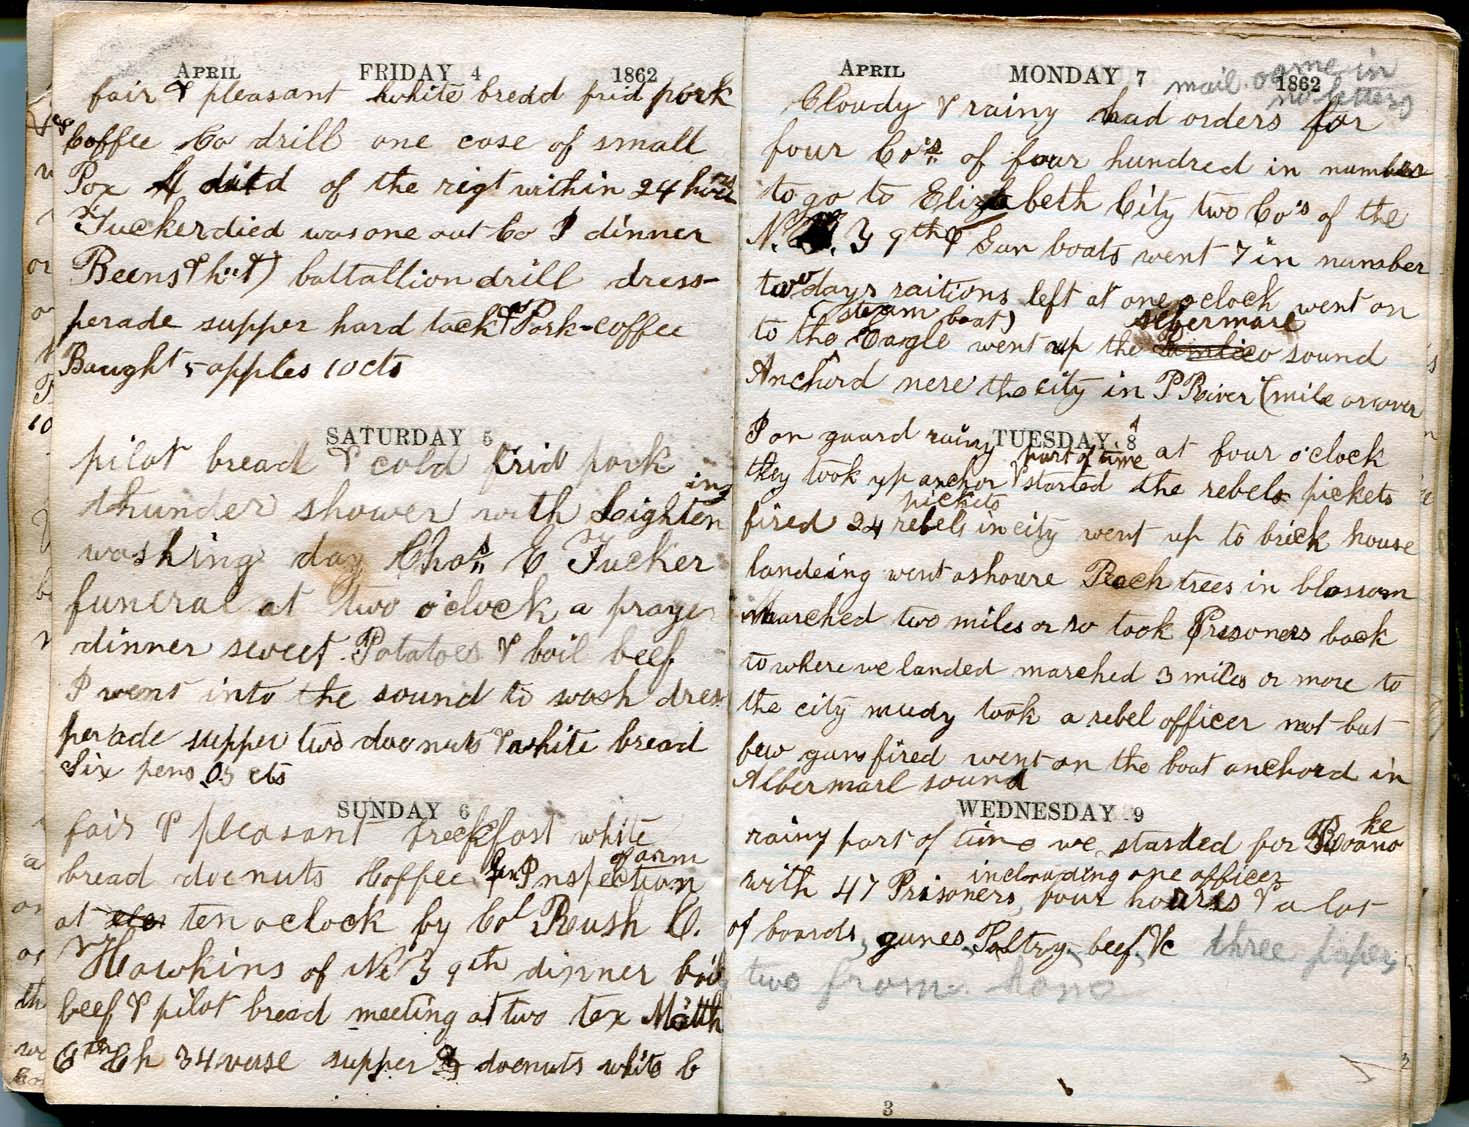 APRIL FRIDAY 4 1862
fair & pleasant white bread frid pork
Coffee Co drill one case of small
Pox died of the rigt within 24 hours
Tucker died was one out Co I dinner
Beens (hot) battallion drill dress-
perade supper hard tack & Pork-coffee
Baught 5 apples 10 cts
SATURDAY 5
pilot bread & cold frid pork
thunder shower with Lightening
washing day Chas E Tucker
funeral at two o'clock a prayer
dinner sweet Potatoes & boil beef
I went into the sound to wash dress
perade supper two doenuts & white bread
Six pens .05 cts
SUNDAY 6
fair & pleasant breekfast white
bread doenuts Hoffee Inspection of arm
at ten o clock by Col Rush C.
Hawkins of N. Y 9th dinner boil
beef & pilot bread meeting at two tex Matth
6th Ch 34 verse supper doenuts white b
APRIL MONDAY 7 1862
mail. came in
no letters
Cloudy & rainy had orders for
four Co's of four hundred in number
to go to Elizabeth City two Co's of the
N. Y 9th & Gun boats went 7 in number
two days raitions left at one oclock went on
(steam boat) Albermarl
to the Eagle went up the Pamlico sound
Anchord nere the city in P River (mile or over
TUESDAY 8
I on guard rainy part of time at four o'clock
they took up anchor & started the rebels pickets
pickets
fired 24 rebels in city went up to brick house
landeing went ashoure Peach trees in blossom
marched two miles or so took Prisoners back
to where we landed marched 3 miles or more to
the city mudy took a rebel officer not but
few guns fired went on the boat anchord in
Albermarl sound
WEDNESDAY 9
rainy part of time we starded for Roanoke
including one officer
with 47 Prisoners, four hours & a lot
of boards, gunes, Poltry, beef, &c three papers
two from home
3